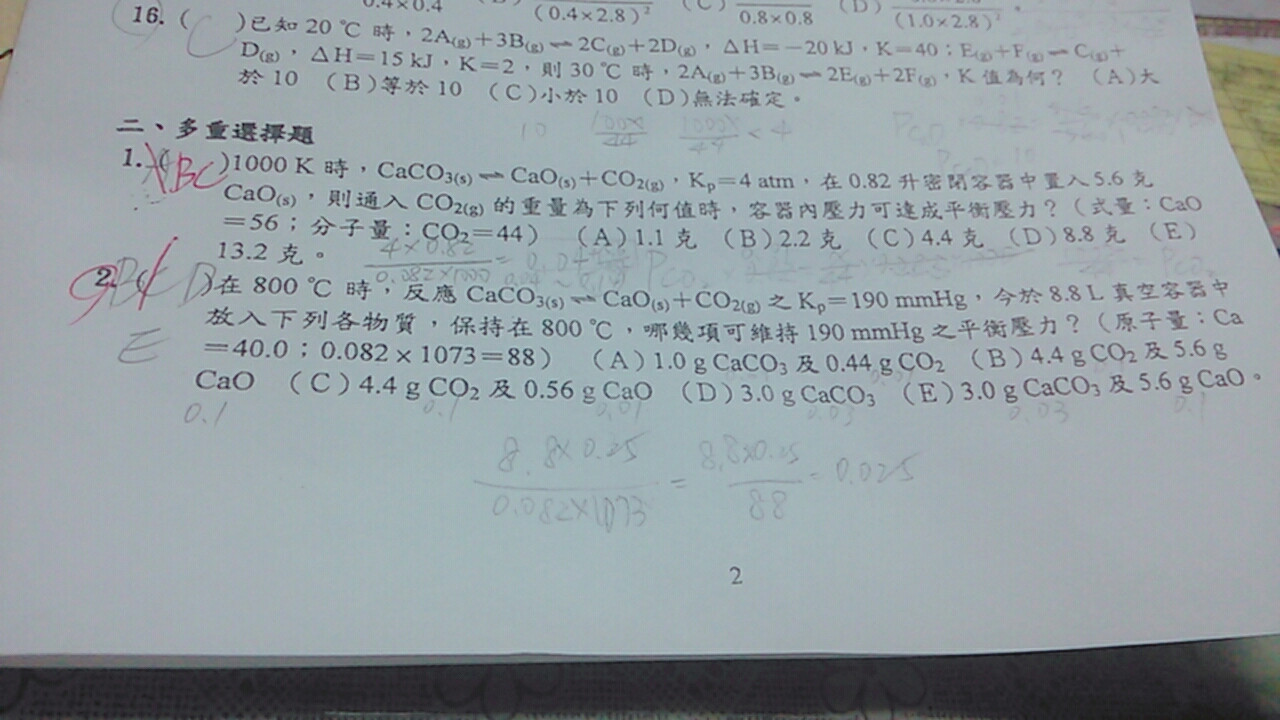 0.4×0.4 (0.4×2.8)² (C) 0.8×0.8 (D) (1.0×2.8)² 。
16. ( C )已知 20 ℃ 時，2A(g)+3B(g)⇌2C(g)+2D(g)，△H=−20 kJ，K=40；E(g)+F(g)⇌C(g)+
D(g)，△H=15 kJ，K=2，則 30 ℃ 時，2A(g)+3B(g)⇌2E(g)+2F(g)，K 值為何？ (A)大
於 10 (B)等於 10 (C)小於 10 (D)無法確定。
二、多重選擇題
10 <4
1. ( ABC )1000 K 時，CaCO3(s)⇌CaO(s)+CO2(g)，Kp=4 atm，在 0.82 升密閉容器中置入 5.6 克
CaO(s)，則通入 CO2(g) 的重量為下列何值時，容器內壓力可達成平衡壓力？(式量：CaO
=56；分子量：CO2=44) (A)1.1 克 (B)2.2 克 (C)4.4 克 (D)8.8 克 (E)
13.2 克。
4×0.82
0.082×1000
2. )在 800 ℃ 時，反應 CaCO3(s)⇌CaO(s)+CO2(g) 之 Kp=190 mmHg，今於 8.8 L 真空容器中
放入下列各物質，保持在 800 ℃，哪幾項可維持 190 mmHg 之平衡壓力？(原子量：Ca
E
=40.0；0.082×1073=88) (A)1.0 g CaCO3 及 0.44 g CO2 (B)4.4 g CO2 及 5.6 g
CaO (C)4.4 g CO2 及 0.56 g CaO (D)3.0 g CaCO3 (E)3.0 g CaCO3 及 5.6 g CaO。
0.1 0.1 0.01 0.03 0.03 0.1
8.8×0.25 8.8×0.25
= = 0.025
0.082×1073 88
2